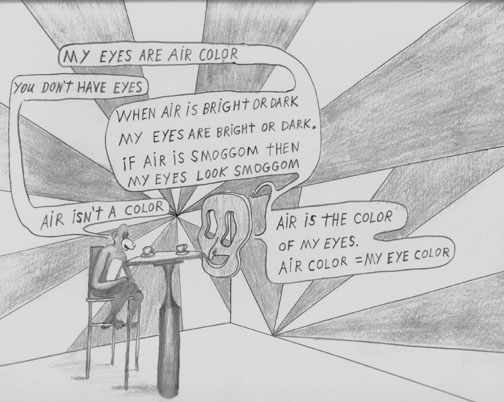 MY EYES ARE AIR COLOR
YOU DON'T HAVE EYES
WHEN AIR IS BRIGHT OR DARK
MY EYES ARE BRIGHT OR DARK.
IF AIR IS SMOGGOM THEN
MY EYES LOOK SMOGGOM
AIR ISN'T A COLOR
AIR IS THE COLOR
OF MY EYES.
AIR COLOR = MY EYE COLOR